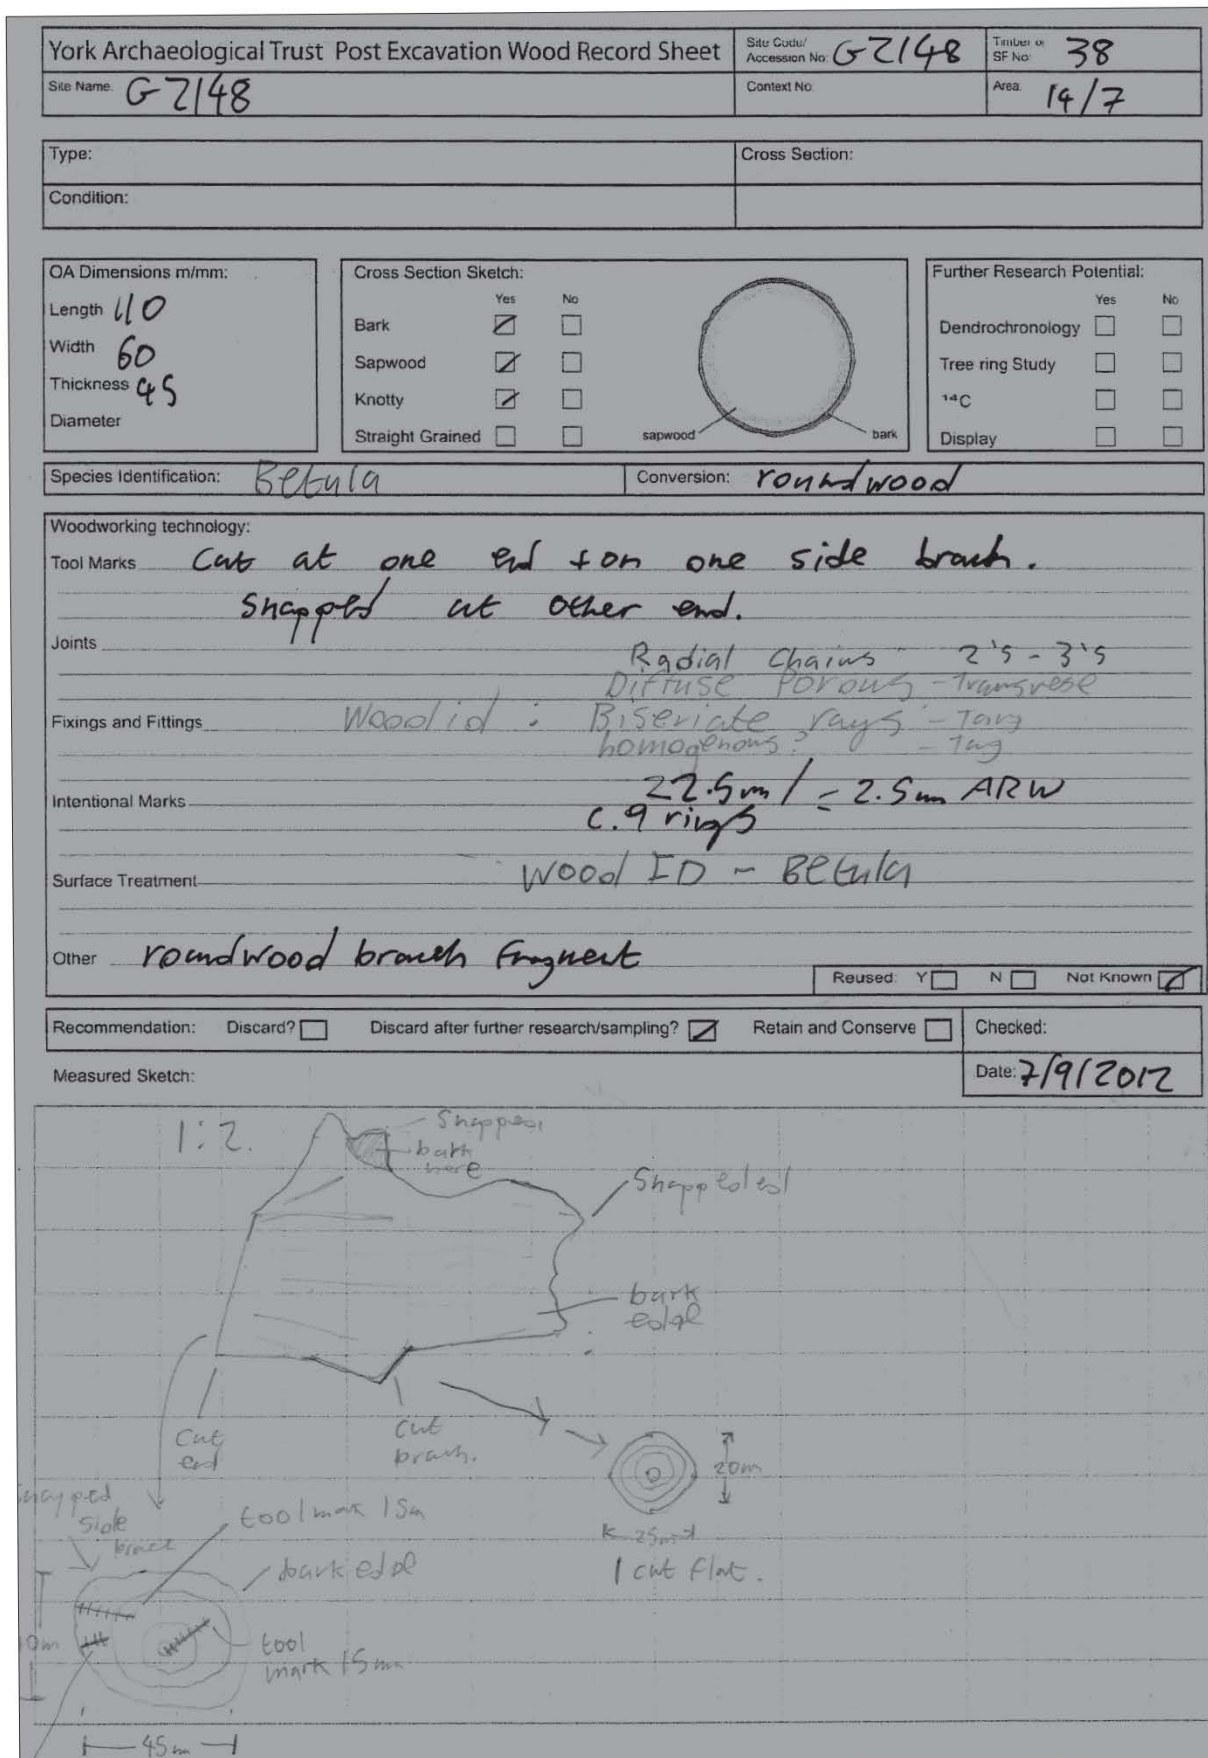 York Archaeological Trust Post Excavation Wood Record Sheet
Site Code/ Accession No: GZ148
Timber or SF No: 38
Site Name: GZ148
Context No:
Area: 14/7
Type:
Cross Section:
Condition:
OA Dimensions m/mm:
Length 110
Width 60
Thickness 45
Diameter
Cross Section Sketch:
Yes No
Bark
Sapwood
Knotty
Straight Grained
sapwood
bark
Further Research Potential:
Yes No
Dendrochronology
Tree ring Study
14C
Display
Species Identification: Betula
Conversion: roundwood
Woodworking technology:
Tool Marks Cut at one end + on one side brach.
Snapped at other end.
Joints
Radial Chains 2's - 3's
Diffuse Porous - Transvese
Fixings and Fittings
Wood id : Biseriate rays - Tang
homogenous? - Tang
Intentional Marks
22.5m / = 2.5mm ARW
c.9 rings
Surface Treatment
Wood ID - Betula
Other roundwood branch fragment
Reused: Y N Not Known
Recommendation: Discard? Discard after further research/sampling? Retain and Conserve
Checked:
Measured Sketch:
Date: 7/9/2012
1:2.
Snapped
bark here
Snapped end
bark edge
Cut end
Cut brach.
20m
25m
1 cut flat.
Snapped side
toolmark 15m
bark edge
tool mark 15mm
45m